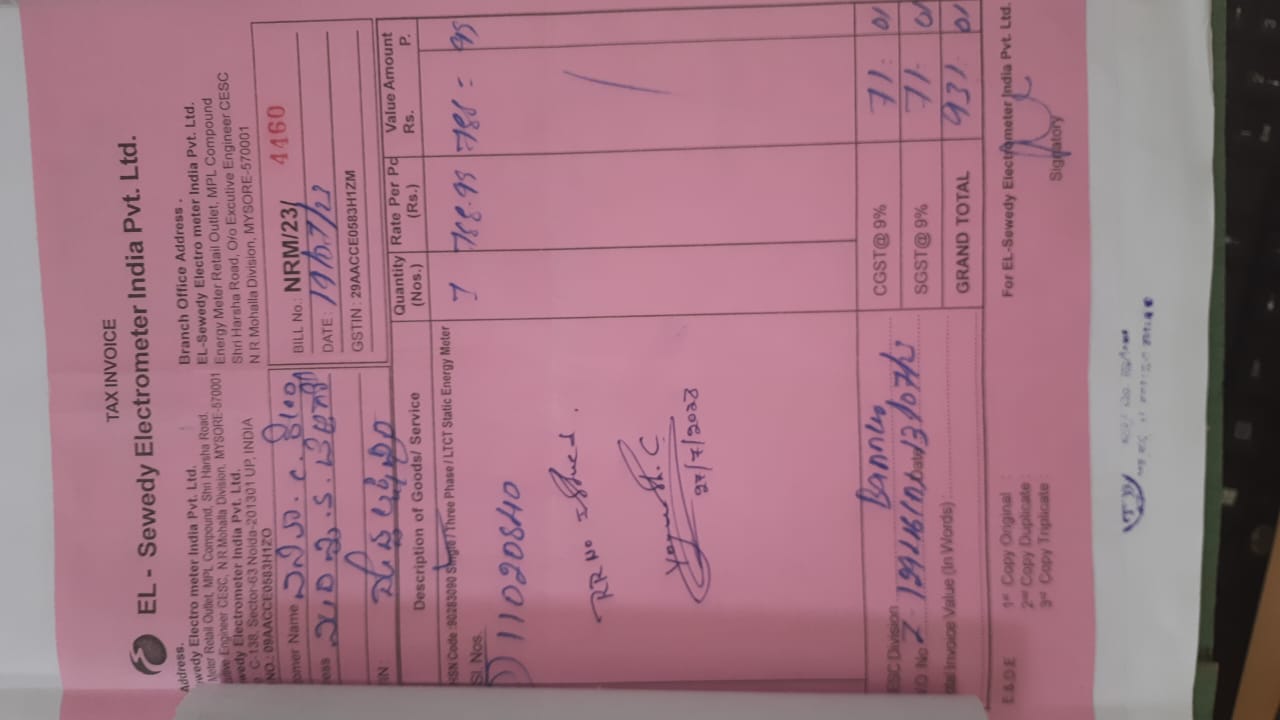 TAX INVOICE
EL - Sewedy Electrometer India Pvt. Ltd.
Address.
wedy Electro meter India Pvt. Ltd.
Meter Retail Outlet, MPL Compound, Shri Harsha Road.
tive Engineer CESC, N R Mohalla Division, MYSORE-570001
wedy Electrometer India Pvt. Ltd.
C-138, Sector-63 Noida-201301 UP, INDIA
NO.: 09AACCE0583H1ZO
Branch Office Address .
EL-Sewedy Electro meter India Pvt. Ltd.
Energy Meter Retail Outlet, MPL Compound
Shri Harsha Road, O/o Excutive Engineer CESC
N R Mohalla Division, MYSORE-570001
omer Name
ess
IN
BILL No.: NRM/23/ 4460
DATE :
GSTIN : 29AACCE0583H1ZM
Description of Goods/ Service
Quantity (Nos.)
Rate Per Pc (Rs.)
Value Amount
Rs. P.
HSN Code :90283090 Single / Three Phase / LTCT Static Energy Meter
Sl. Nos.
1 788.95 788 = 95
11020840
RR No Issued .
27/7/2023
ESC Division Bannur
CGST@ 9% 71. 01
SGST@ 9% 71. 01
GRAND TOTAL 931. 01
tal Invoice Value (In Words) :
E & O E
1st Copy Original :
2nd Copy Duplicate :
3rd Copy Triplicate :
For EL-Sewedy Electrometer India Pvt. Ltd.
Signatory